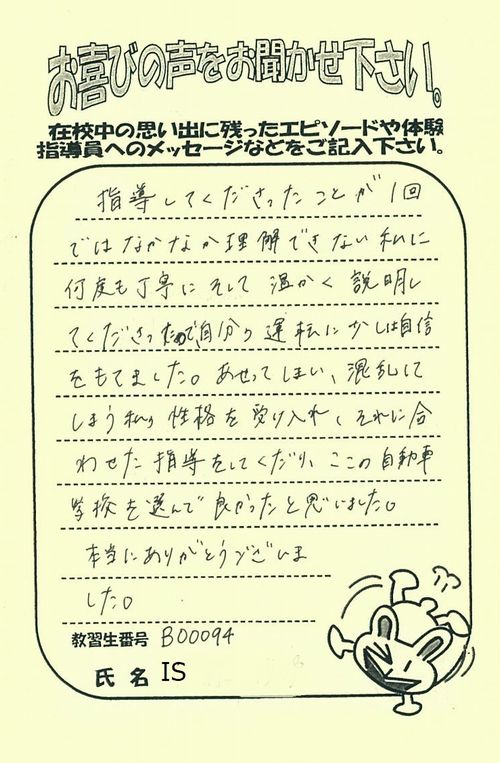 お喜びの声をお聞かせ下さい。
在校中の思い出に残ったエピソードや体験
指導員へのメッセージなどをご記入下さい。
指導してくださったことが1回
ではなかなか理解できない私に
何度も丁寧にそして温かく説明し
てくださったので、自分の運転に少しは自信
をもてました。あせってしまい、混乱して
しまう私の性格を受け入れ、それに合
わせた指導をしてくだり、ここの自動車
学校を選んで良かったと思いました。
本当にありがとうございま
した。
教習生番号 B00094
氏名 IS